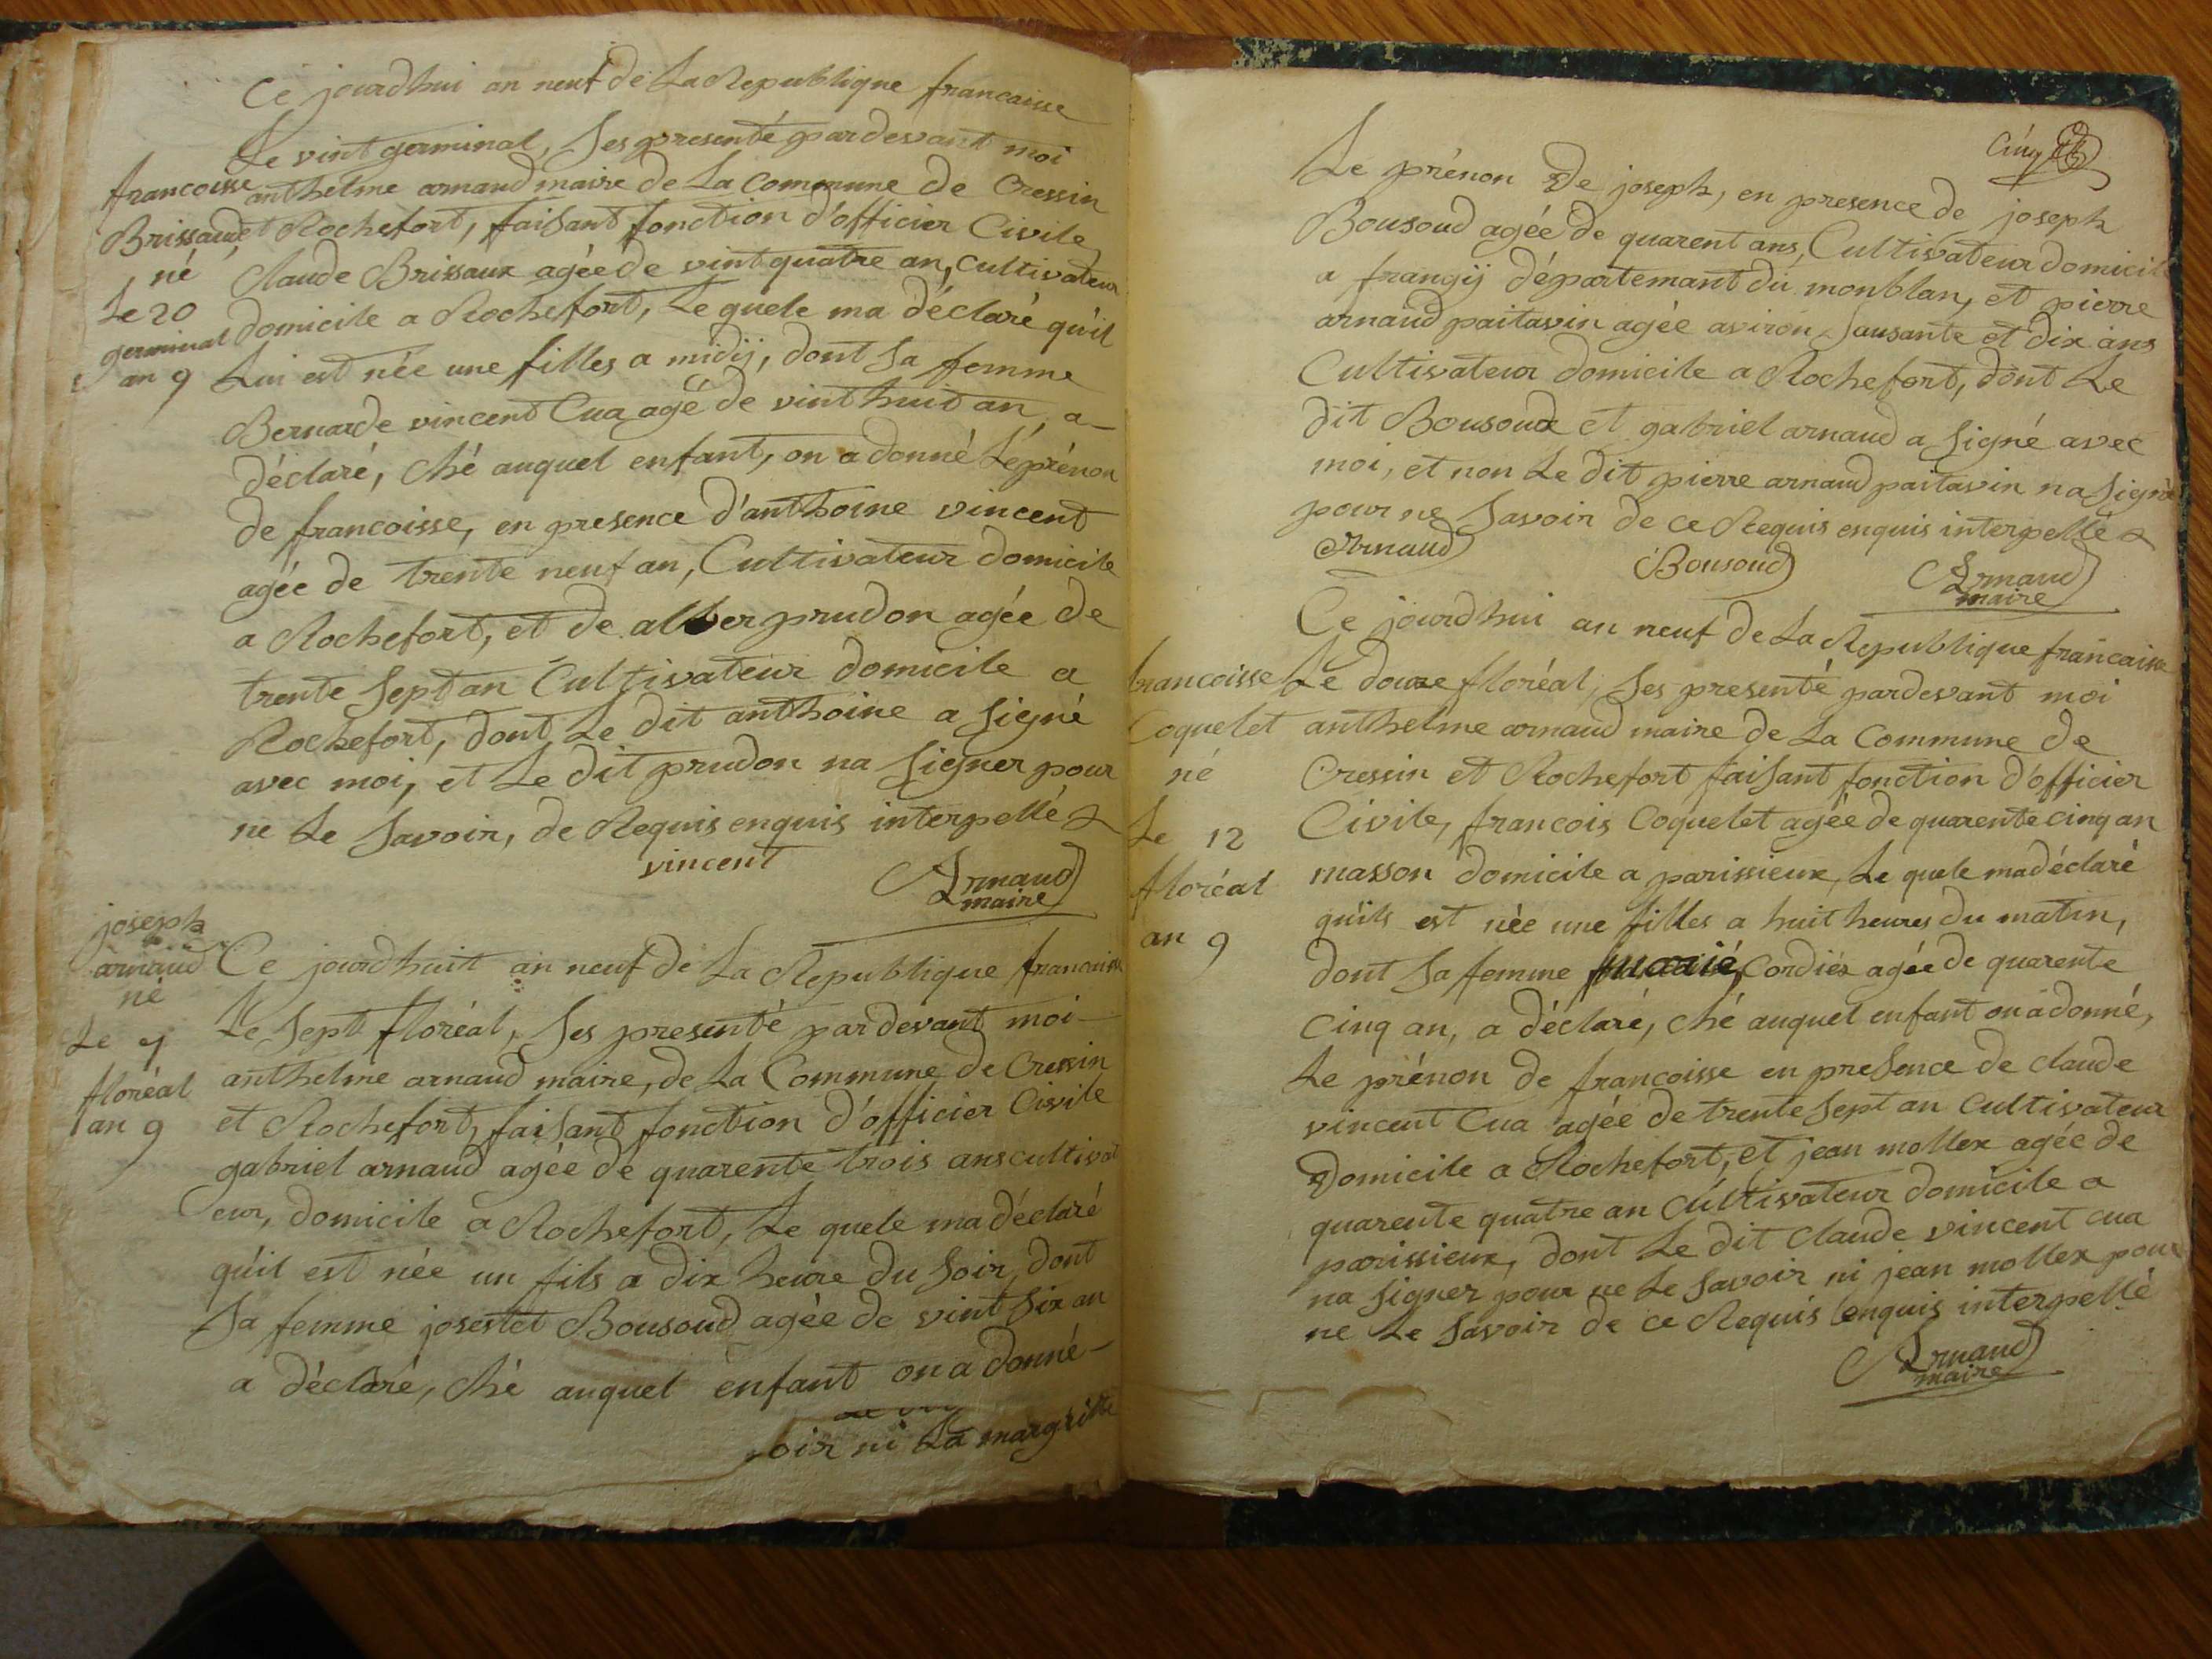 Ce jourdhui an neuf de La Republique francaisse
Le vint germinal, Ses presenté pardevant moi
francoisse
Brissaud
né
Le 20
germinal
an 9
anthelme arnaud maire de La Commune de Cressin
et Rochefort, faisant fonction d'officier Civile
Claude Brissaux agée de vint quatre an, Cultivateur
domicile a Rochefort, Le quele ma déclaré qu'il
Lui est née une filles a midij, dont Sa femme
Bernarde vincent Cua agé de vint huit an a
déclaré, Ché auquel enfant, on a donné Lé prénon
de francoisse, en presence d'anthoine vincent
agée de trente neuf an, Cultivateur domicile
a Rochefort, et de alber prudon agée de
trente Sept an Cultivateur domicile a
Rochefort, dont Le dit anthoine a Signé
avec moi, et Le dit prudon na Signer pour
ne Le Savoir, de Requis enquis interpellé
vincent
Arnaud
maire
joseph
arnaud
né
Le 7
floréal
an 9
Ce jourdhuit an neuf de La Republique francaisse
Le Sept floréal, Ses presenté pardevant moi
anthelme arnaud maire, de La Commune de Cressin
et Rochefort, faisant fonction d'officier Civile
gabriel arnaud agée de quarente trois ans cultivat
eur, domicile a Rochefort, Le quele ma déclaré
qu'il est née un fils a dix heure du Soir, dont
Sa femme josestet Bousoud agée de vint Six an
a déclaré, Ché auquel enfant on a donné
oir ni La margritte
Cinq
Le prénon De joseph, en presence de joseph
Bousoud agée de quarent ans, Cultivateur domicile
a frangij départemant du monblan, et pierre
arnaud paitavin agée aviron Sausante et dix ans
Cultivateur domicile a Rochefort, dont Le
dit Bousoud et gabriel arnaud a Signé avec
moi, et non Le dit pierre arnaud paitavin na Signé
pour ne Savoir de ce Requis enquis interpellé
Arnaud Bousoud Arnaud
maire
Ce jourdhui an neuf de La Republique francaisse
francoisse
Coquelet
né
Le 12
floréal
an 9
Le douze floréal, Ses presenté pardevant moi
anthelme arnaud maire de La Commune de
Cressin et Rochefort faisant fonction d'officier
Civile, francois Coquelet agée de quarente cinq an
masson domicile a parissieux, Le quele ma déclaré
qu'ils est née une filles a huit heures du matin,
dont Sa femme marié, Cordier agée de quarente
cinq an, a déclaré, Ché auquel enfant on a donné,
Le prénon de francoisse en presence de claude
vincent Cua agée de trente Sept an Cultivateur
Domicile a Rochefort, et jean mollex agée de
quarente quatre an Cultivateur domicile a
parissieux, dont Le dit Claude vincent cua
na Signer pour ne Le Savoir ni jean mollex pour
ne Le Savoir de ce Requis enquis interpellé
Arnaud
maire